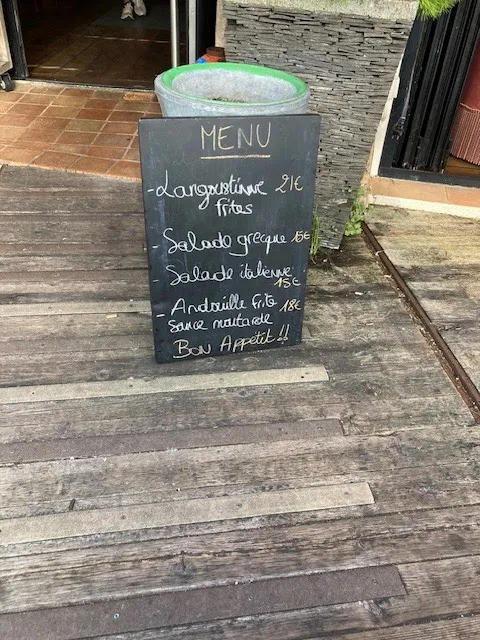 MENU
- Langoustinne 21€
frites
- Salade grecque 15€
- Salade italienne
15€
- Andouille frite 18€
sauce moutarde
BON APPÉTIT !!